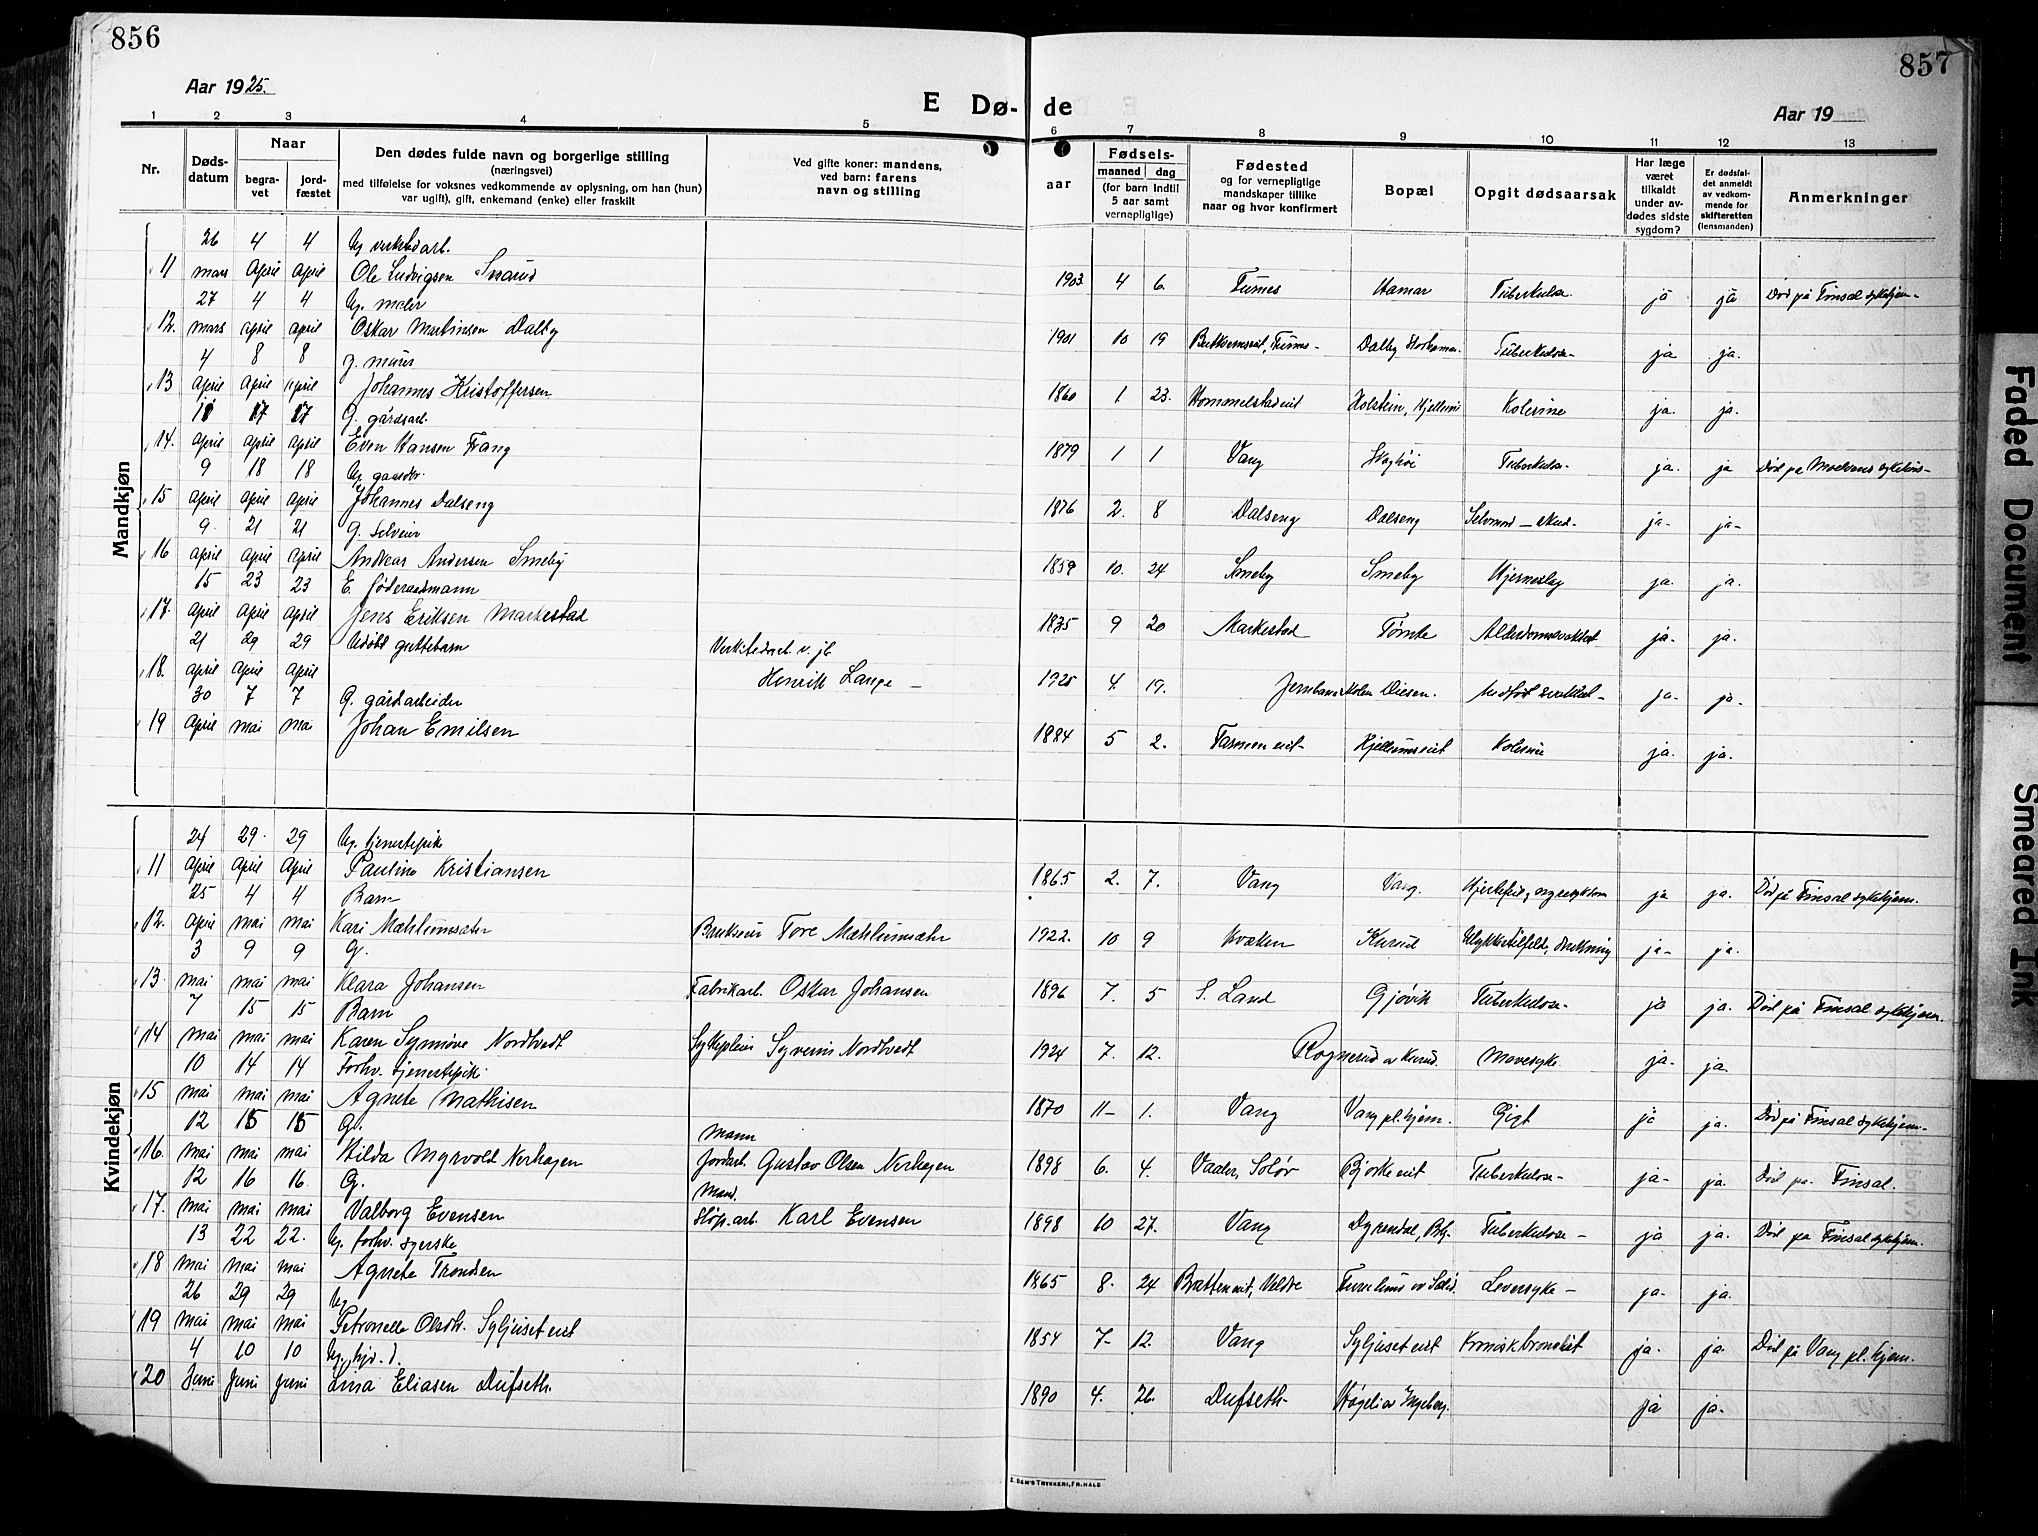 856
857
Aar 1925.
E Dø-de
Aar 19
1 2 3 4 5 6 7 8 9 10 11 12 13
Nr.
Døds-
datum
Naar
begra-
vet
jord-
fæstet
Den dødes fulde navn og borgerlige stilling
(næringsvei)
med tilføielse for voksnes vedkommende av oplysning, om han (hun)
var ugift), gift, enkemand (enke) eller fraskilt
Ved gifte koner: mandens,
ved barn: farens
navn og stilling
aar
Fødsels-
maaned dag
(for barn indtil
5 aar samt
vernepligtige)
Fødested
og for vernepligtige
mandskaper tillike
naar og hvor konfirmert
Bopæl
Opgit dødsaarsak
Har læge
været
tilkaldt
under av-
dødes sidste
sygdom?
Er dødsfal-
det anmeldt
av vedkom-
mende for
skifteretten
(lensmanden)
Anmerkninger
Mandkjøn
26 4 4 Ug verkstedarb.
11 mars April April Ole Ludvigsen Snarud 1903 4 6. Furnes Hamar Tuberkulose ja ja Død på Finsal sykehjem-
27 4 4 Ug. maler
12. mars april april Oskar Martinsen Dalby 1901 10 19 Furnes- Dalby Tuberkulose- ja ja.
4 8 8 g. murer
13 April April April Johannes Kristoffersen 1860 1 23. Hommelstadeiet Holstein, Kolerine ja. ja.
11 17 17 G. gårdsarb.
14. April April April Even Hansen Frang 1879 1 1 Vang Tuberkulose- ja. ja Død på
9 18 18 Ug. gaardbr.
15 April April April Johannes Dalseng 1876 2. 8 Dalseng Dalseng Selvmord - skud- ja- ja-
9. 21 21 G. selveier
16 April April April Andreas Andersen Smeby 1859 10. 24 Smeby Smeby Hjerneslag ja. ja.
15 23 23 E. føderaadmann
17. April April April Jens Eriksen Markestad 1835 9 20 Markestad Tømte ja- ja.
21 29 29 Udøbt guttebarn Verkstedarb. v. jb
18. April April April Henrik Lange - 1925 4. 19. Diesen. Medfødt svakhet- ja- ja-
30 7 7 G. gårdarbeider
19 April mai mai Johan Emilsen 1884 5 2. Kjellumseiet Kolerine ja. ja.
Kvindekjøn
24 29. 29 Ug. tjenestepik
11 April April April Pauline Kristiansen 1865 2. 7. Vang Vang. ja ja. Død på Finsal sykehjem.
25 4 4 Barn
12. April mai mai Kari Mæhlumsæter Brukseier Tore Mæhlumsæter 1922. 10 9 Kvæken Kurud Ulykkestilfelde, drukning ja- ja.
3 9 9 G.
13. mai mai mai Klara Johansen Fabrikarb. Oskar Johansen 1896 7. 5 S. Land Gjøvik Tuberkulose- ja ja. Død på Finsal sykehjem.
7 15 15 Barn
14 mai mai mai Karen Synnøve Nordtvedt Sykepleier Syverin Nordtvedt 1924 7. 12. Rognerud av Kurud. Mavesyke ja- ja.
10 14 14 Forhv. tjenestepik.
15 mai mai mai Agnete Mathisen 1870 11- 1. Vang Vang pl. hjem. Gigt ja ja. Død på Finsal sykehjem-
12 15 15 G. Mann
16. mai mai mai Hilda Myrvold Nerhagen Jordarb. Gustav Olsen Nerhagen 1898 6. 4. Vaaler, Solør Bjørkeeiet Tuberkulose- ja- ja. Død på Finsal.
12 16 16. G. Mand.
17. mai mai mai Valborg Evensen arb. Karl Evensen 1898 10 27. Vang Tuberkulose- ja ja. Død på Finsal sykehjem.
13 22 22. Ug. forhv. syerske
18 mai mai mai Agnete Trondsen 1865 8. 24 Leversyke - ja- ja.
26 29 29 Ug
19 mai mai mai Petronelle Olsdtr. Syljuseteiet 1854 7- 12. Vang Syljuseteiet Kronisk bronchit ja. ja. Død på Vang pl. hjem.
4 10 10 Ug.
20 Juni Juni Juni Lina Eliasen Dufseth. 1890 4. 26. Dufseth- ja ja.
Faded Document
Smeared Ink